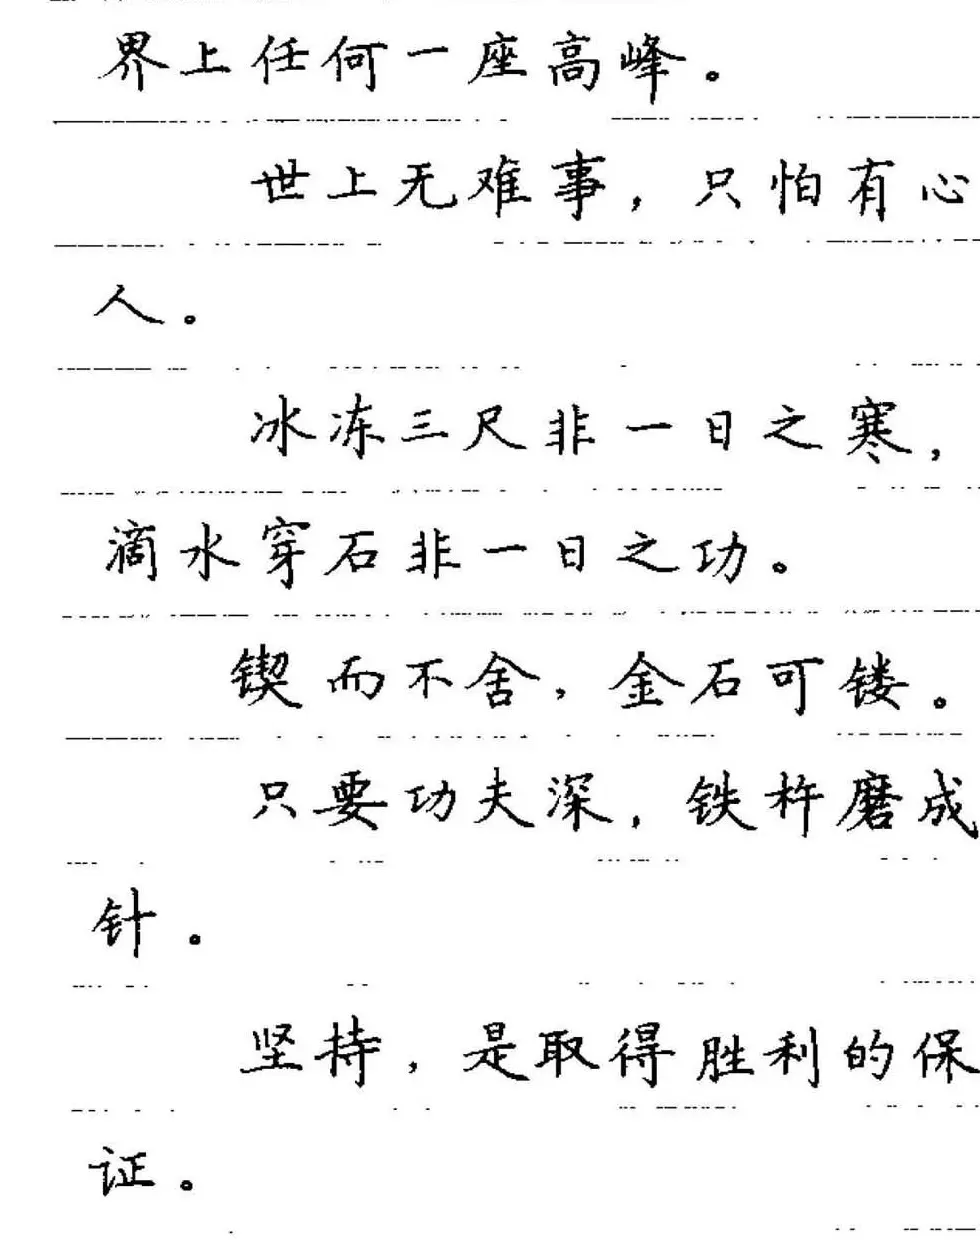 界上任何一座高峰。
世上无难事，只怕有心
人。
冰冻三尺非一日之寒，
滴水穿石非一日之功。
锲而不舍，金石可镂。
只要功夫深，铁杵磨成
针。
坚持，是取得胜利的保
证。